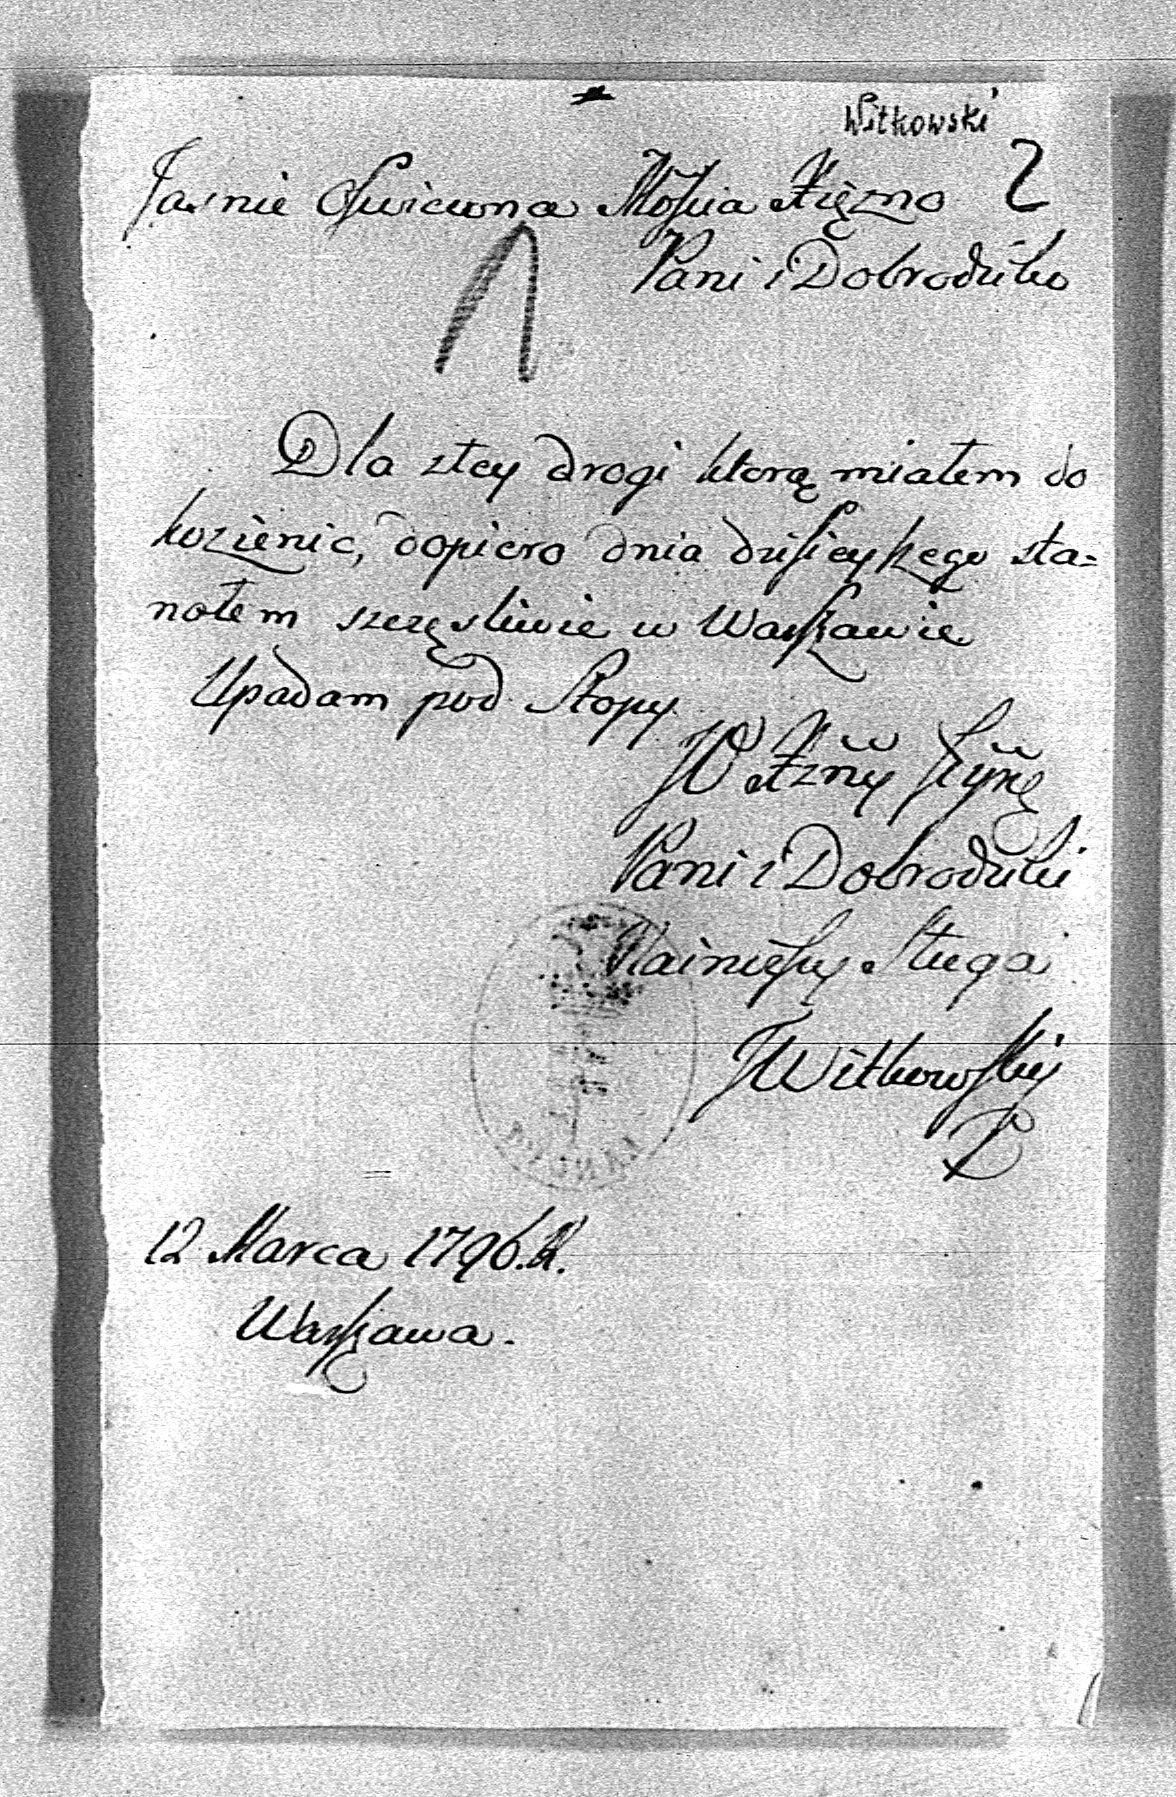 Witkowski
2
Jasnie Oswiecona Mościa Xiężno
Pani i Dobrodziko
1
Dla złey drogi ktorą miałem do
kozienic, dopiero dnia dzisieyszego sta=
nołem szczęsliwie w Warszawie
Upadam pod Stopy
W Xżñy
Pani i Dobrodziki
Nainiższy Sługa
JWitkowskiy
12 Marca 1796. R.
Warszawa.